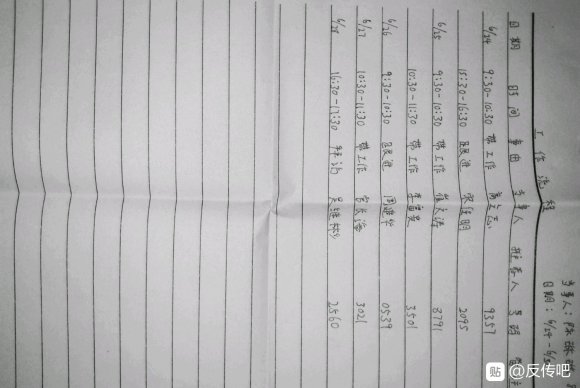 工作流程
当事人：陈
日期：6/24-6/
日期 时间 事由 当事人 推荐人 号码
6/24 9:30-10:30 带工作 9357
15:30-16:30 跟进 宋佳明 2095
6/25 9:30-10:30 带工作 8791
10:30-11:30 带工作 3501
6/26 9:30-10:30 跟进 周建华 0539
6/27 10:30-11:30 带工作 3021
6/28 16:30-17:30 2560
贴 @反传吧